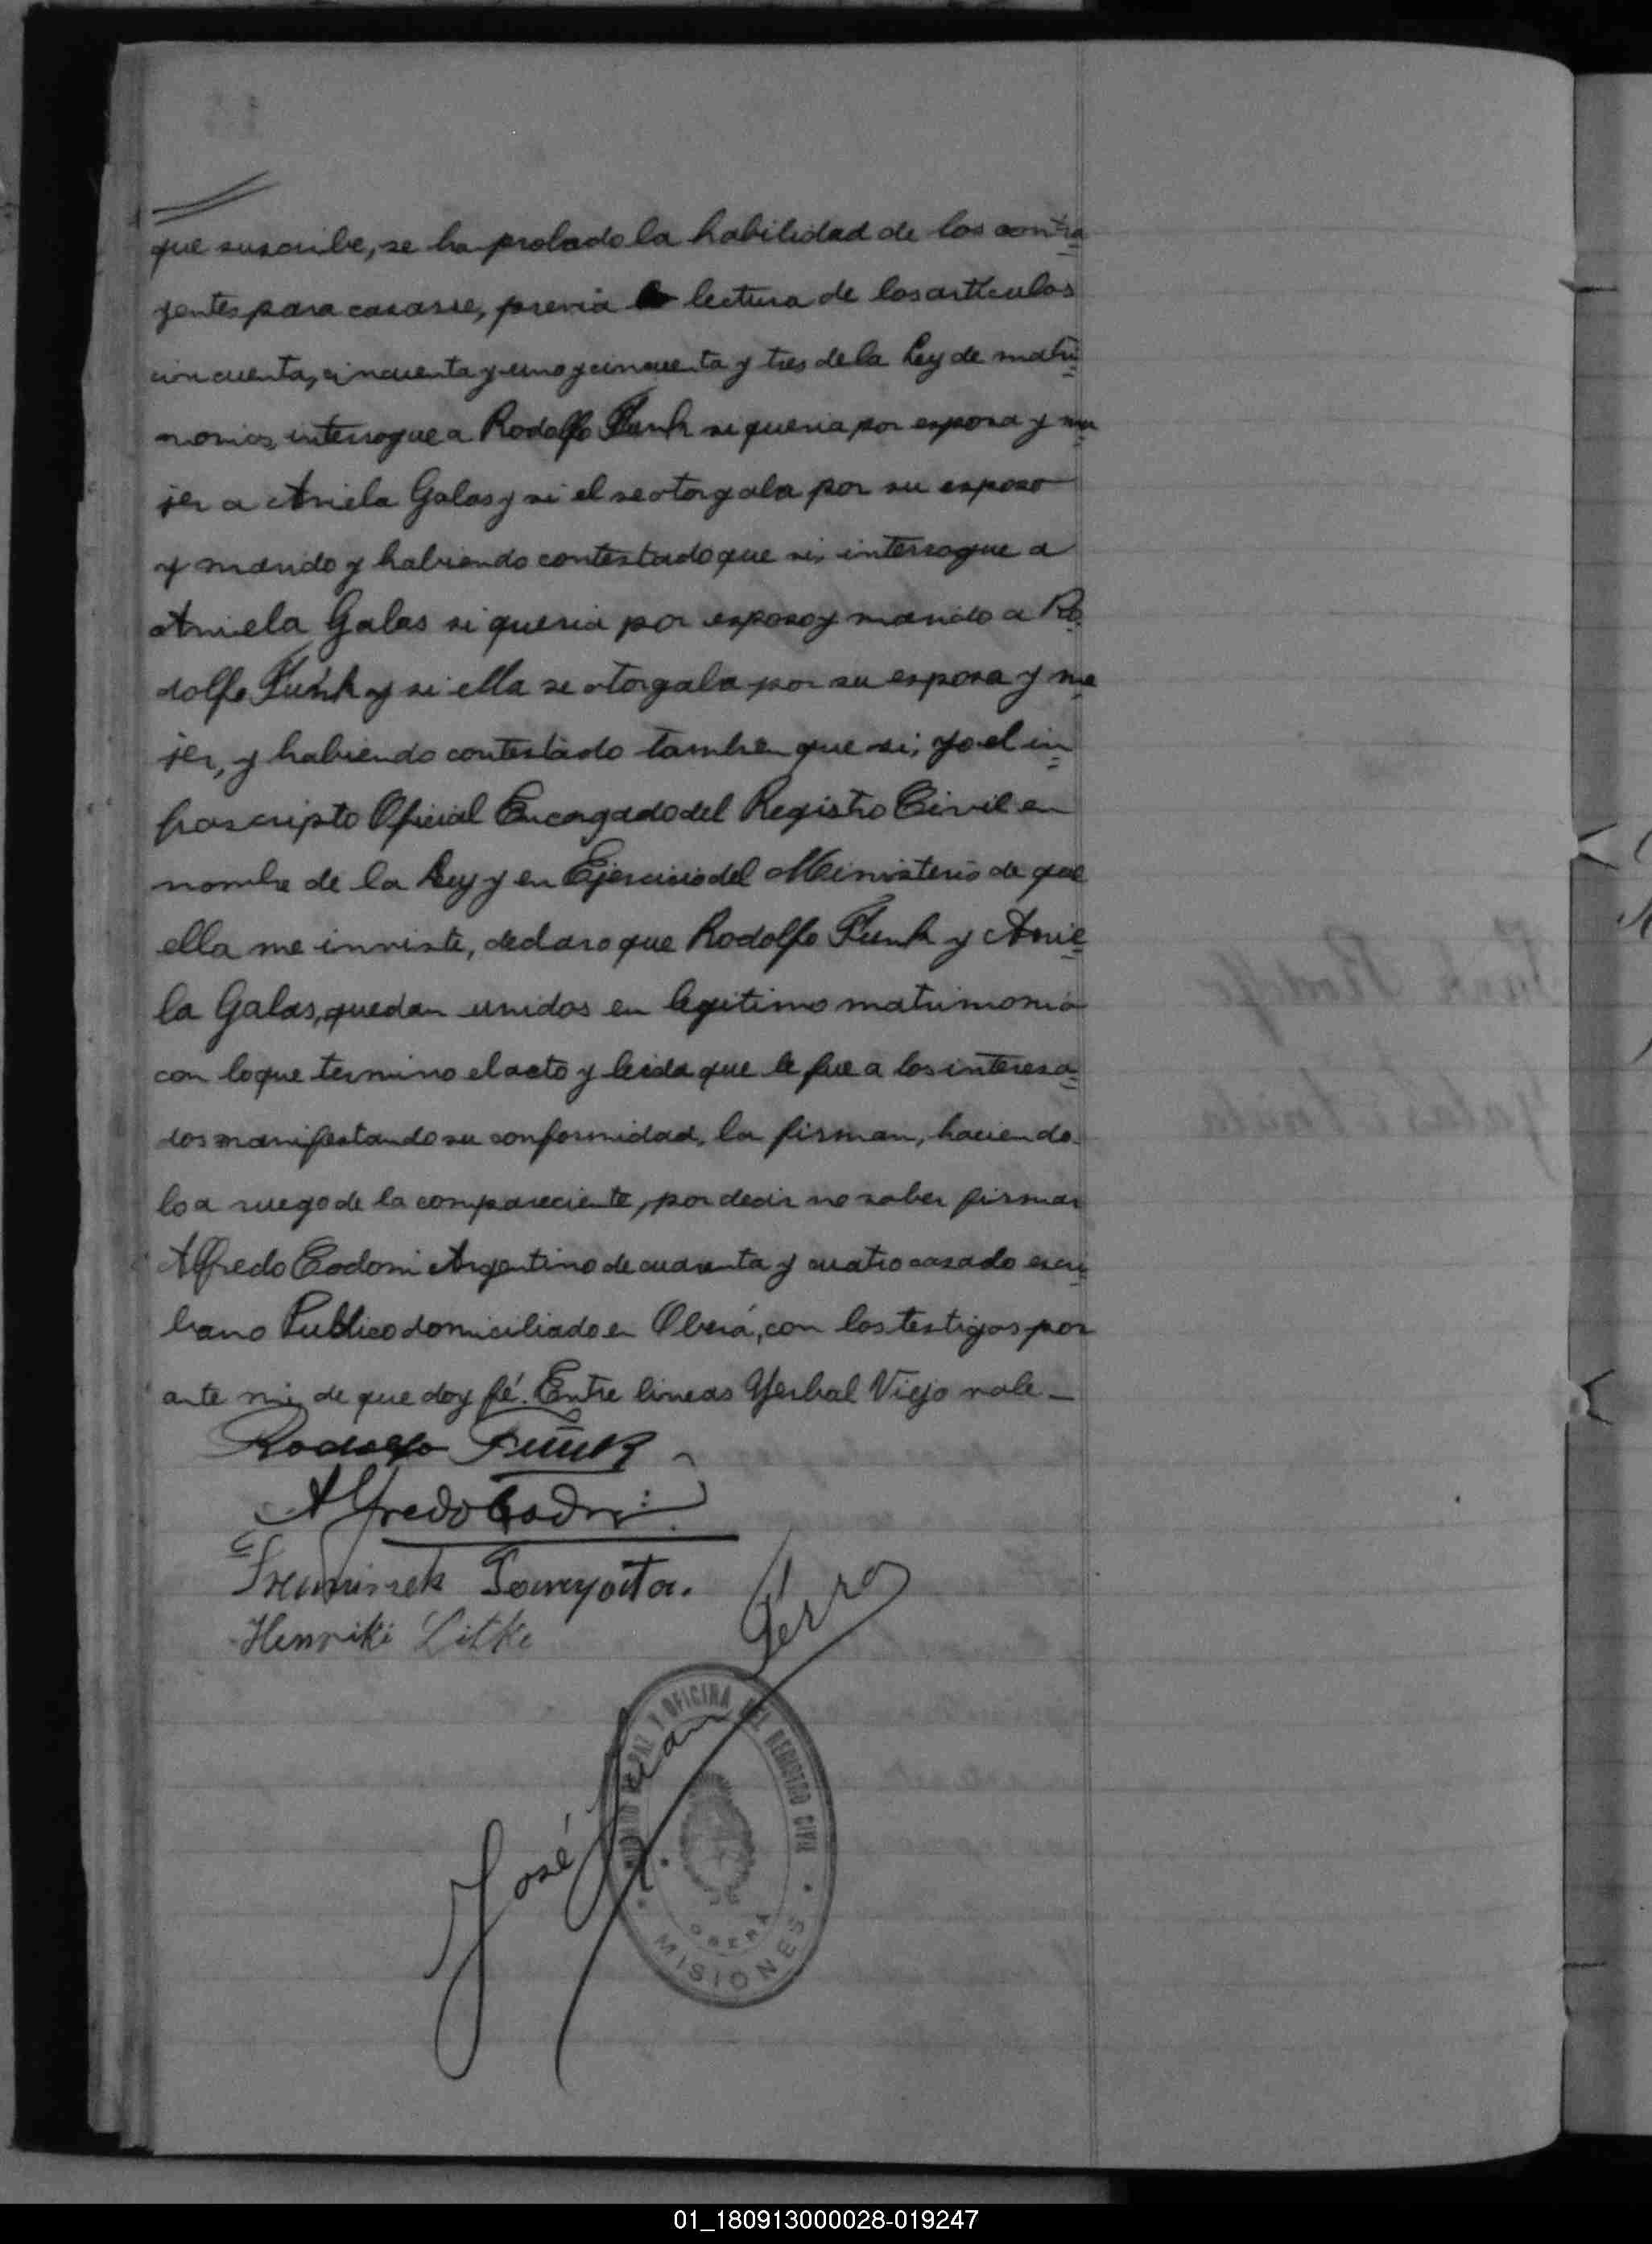 que suscribe, se ha probado la habilidad de los contra=
yentes para casarse, previa lectura de los articulos
cincuenta, cincuenta y uno y cincuenta y tres de la Ley de matri=
monios, interrogue a Rodolfo Funk si queria por esposa y mu=
jer a Aniela Galas y si el se otorgaba por su esposo
y marido y habiendo contestado que si, interrogue a
Aniela Galas si queria por esposo y marido a Ro=
dolfo Funk y si ella se otorgaba por su esposa y mu=
jer, y habiendo contestado tambien que si; yo el in=
frascripto Oficial Encargado del Registro Civil en
nombre de la Ley y en Ejercicio del Ministerio de que
ella me inviste, declaro que Rodolfo Funk y Anie=
la Galas, quedan unidos en legitimo matrimonio
con lo que termino el acto y leida que le fue a los interesa=
dos manifestando su conformidad, la firman, haciendo
lo a ruego de la compareciente, por decir no saber firmar
Alfredo Codoni Argentino de cuarenta y cuatro casado escri=
bano Publico domiciliado en Oberá, con los testigos por
ante mi de que doy fé. Entre lineas Yerbal Viejo vale_
Rodolfo Funk
Alfredo Codoni
Henriki Litke
José Juan
PAZ Y OFICINA DEL REGISTRO CIVIL
OBERÁ
MISIONES
Funk Rodolfo
Galas Aniela
01_180913000028-019247